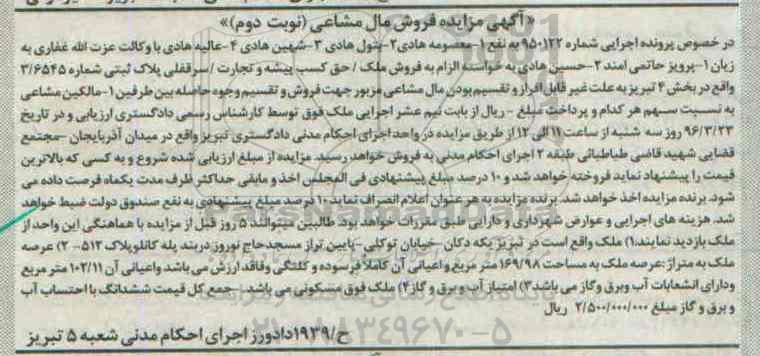 « آگهی مزایده فروش مال مشاعی (نوبت دوم)»
در خصوص پرونده اجرایی شماره ۹۵۰۱۲۲ به نفع ۱-معصومه هادی ۲-بتول هادی ۳-شهین هادی ۴-عالیه هادی با وکالت عزت الله غفاری به
زیان ۱-پرویز حاتمی امند ۲-حسین هادی به خواسته الزام به فروش ملک / حق کسب پیشه و تجارت / سرقفلی پلاک ثبتی شماره ۳/۶۵۴۵
واقع در بخش ۴ تبریز به علت غیر قابل افراز و تقسیم بودن مال مشاعی مزبور جهت فروش و تقسیم وجوه حاصله بین طرفین ۱-مالکین مشاعی
به نسبت سهم هر کدام و پرداخت مبلغ - ریال از بابت نیم عشر اجرایی ملک فوق توسط کارشناس رسمی دادگستری ارزیابی و در تاریخ
۹۶/۳/۲۳ روز سه شنبه از ساعت ۱۱ الی ۱۲ از طریق مزایده در واحد اجرای احکام مدنی دادگستری تبریز واقع در میدان آذربایجان -مجتمع
قضایی شهید قاضی طباطبائی طبقه ۲ اجرای احکام مدنی به فروش خواهد رسید. مزایده از مبلغ ارزیابی شده شروع و به کسی که بالاترین
قیمت را پیشنهاد نماید فروخته خواهد شد و ۱۰ درصد مبلغ پیشنهادی فی المجلس اخذ و مابقی حداکثر ظرف مدت یکماه فرصت داده می
شود. برنده مزایده اخذ خواهد شد. برنده مزایده به هر عنوان اعلام انصراف نماید ۱۰ درصد مبلغ پیشنهادی به نفع صندوق دولت ضبط خواهد
شد. هزینه های اجرایی و عوارض شهرداری و دارایی طبق مقررات خواهد بود. طالبین میتوانند ۵ روز قبل از مزایده با هماهنگی این واحد از
ملک بازدید نمایند.۱) ملک واقع است در تبریز یکه دکان -خیابان توکلی -پایین تراز مسجدحاج نوروز دربند پله کانلو پلاک ۵۱۳- ۲) عرصه
ملک به متراژ :عرصه ملک به مساحت ۱۶۹/۹۸ متر مربع و اعیانی آن کاملا فرسوده و کلنگی و فاقد ارزش می باشد و اعیانی آن ۱۰۲/۱۱ متر مربع
و دارای انشعابات آب و برق و گاز می باشد ۳) امتیاز آب و برق و گاز ۴) ملک فوق مسکونی می باشد - جمع کل قیمت ششدانگ با احتساب آب
و برق و گاز مبلغ ۲/۵۰۰/۰۰۰/۰۰۰ ریال
ح/۱۹۳۹ دادورز اجرای احکام مدنی شعبه ۵ تبریز